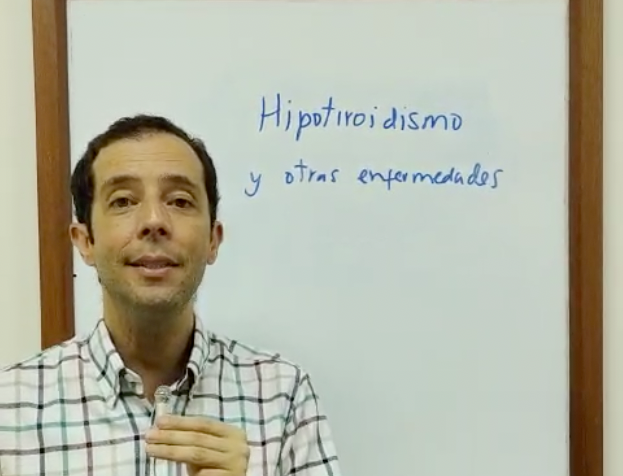 Hipotiroidismo
y otras enfermedades